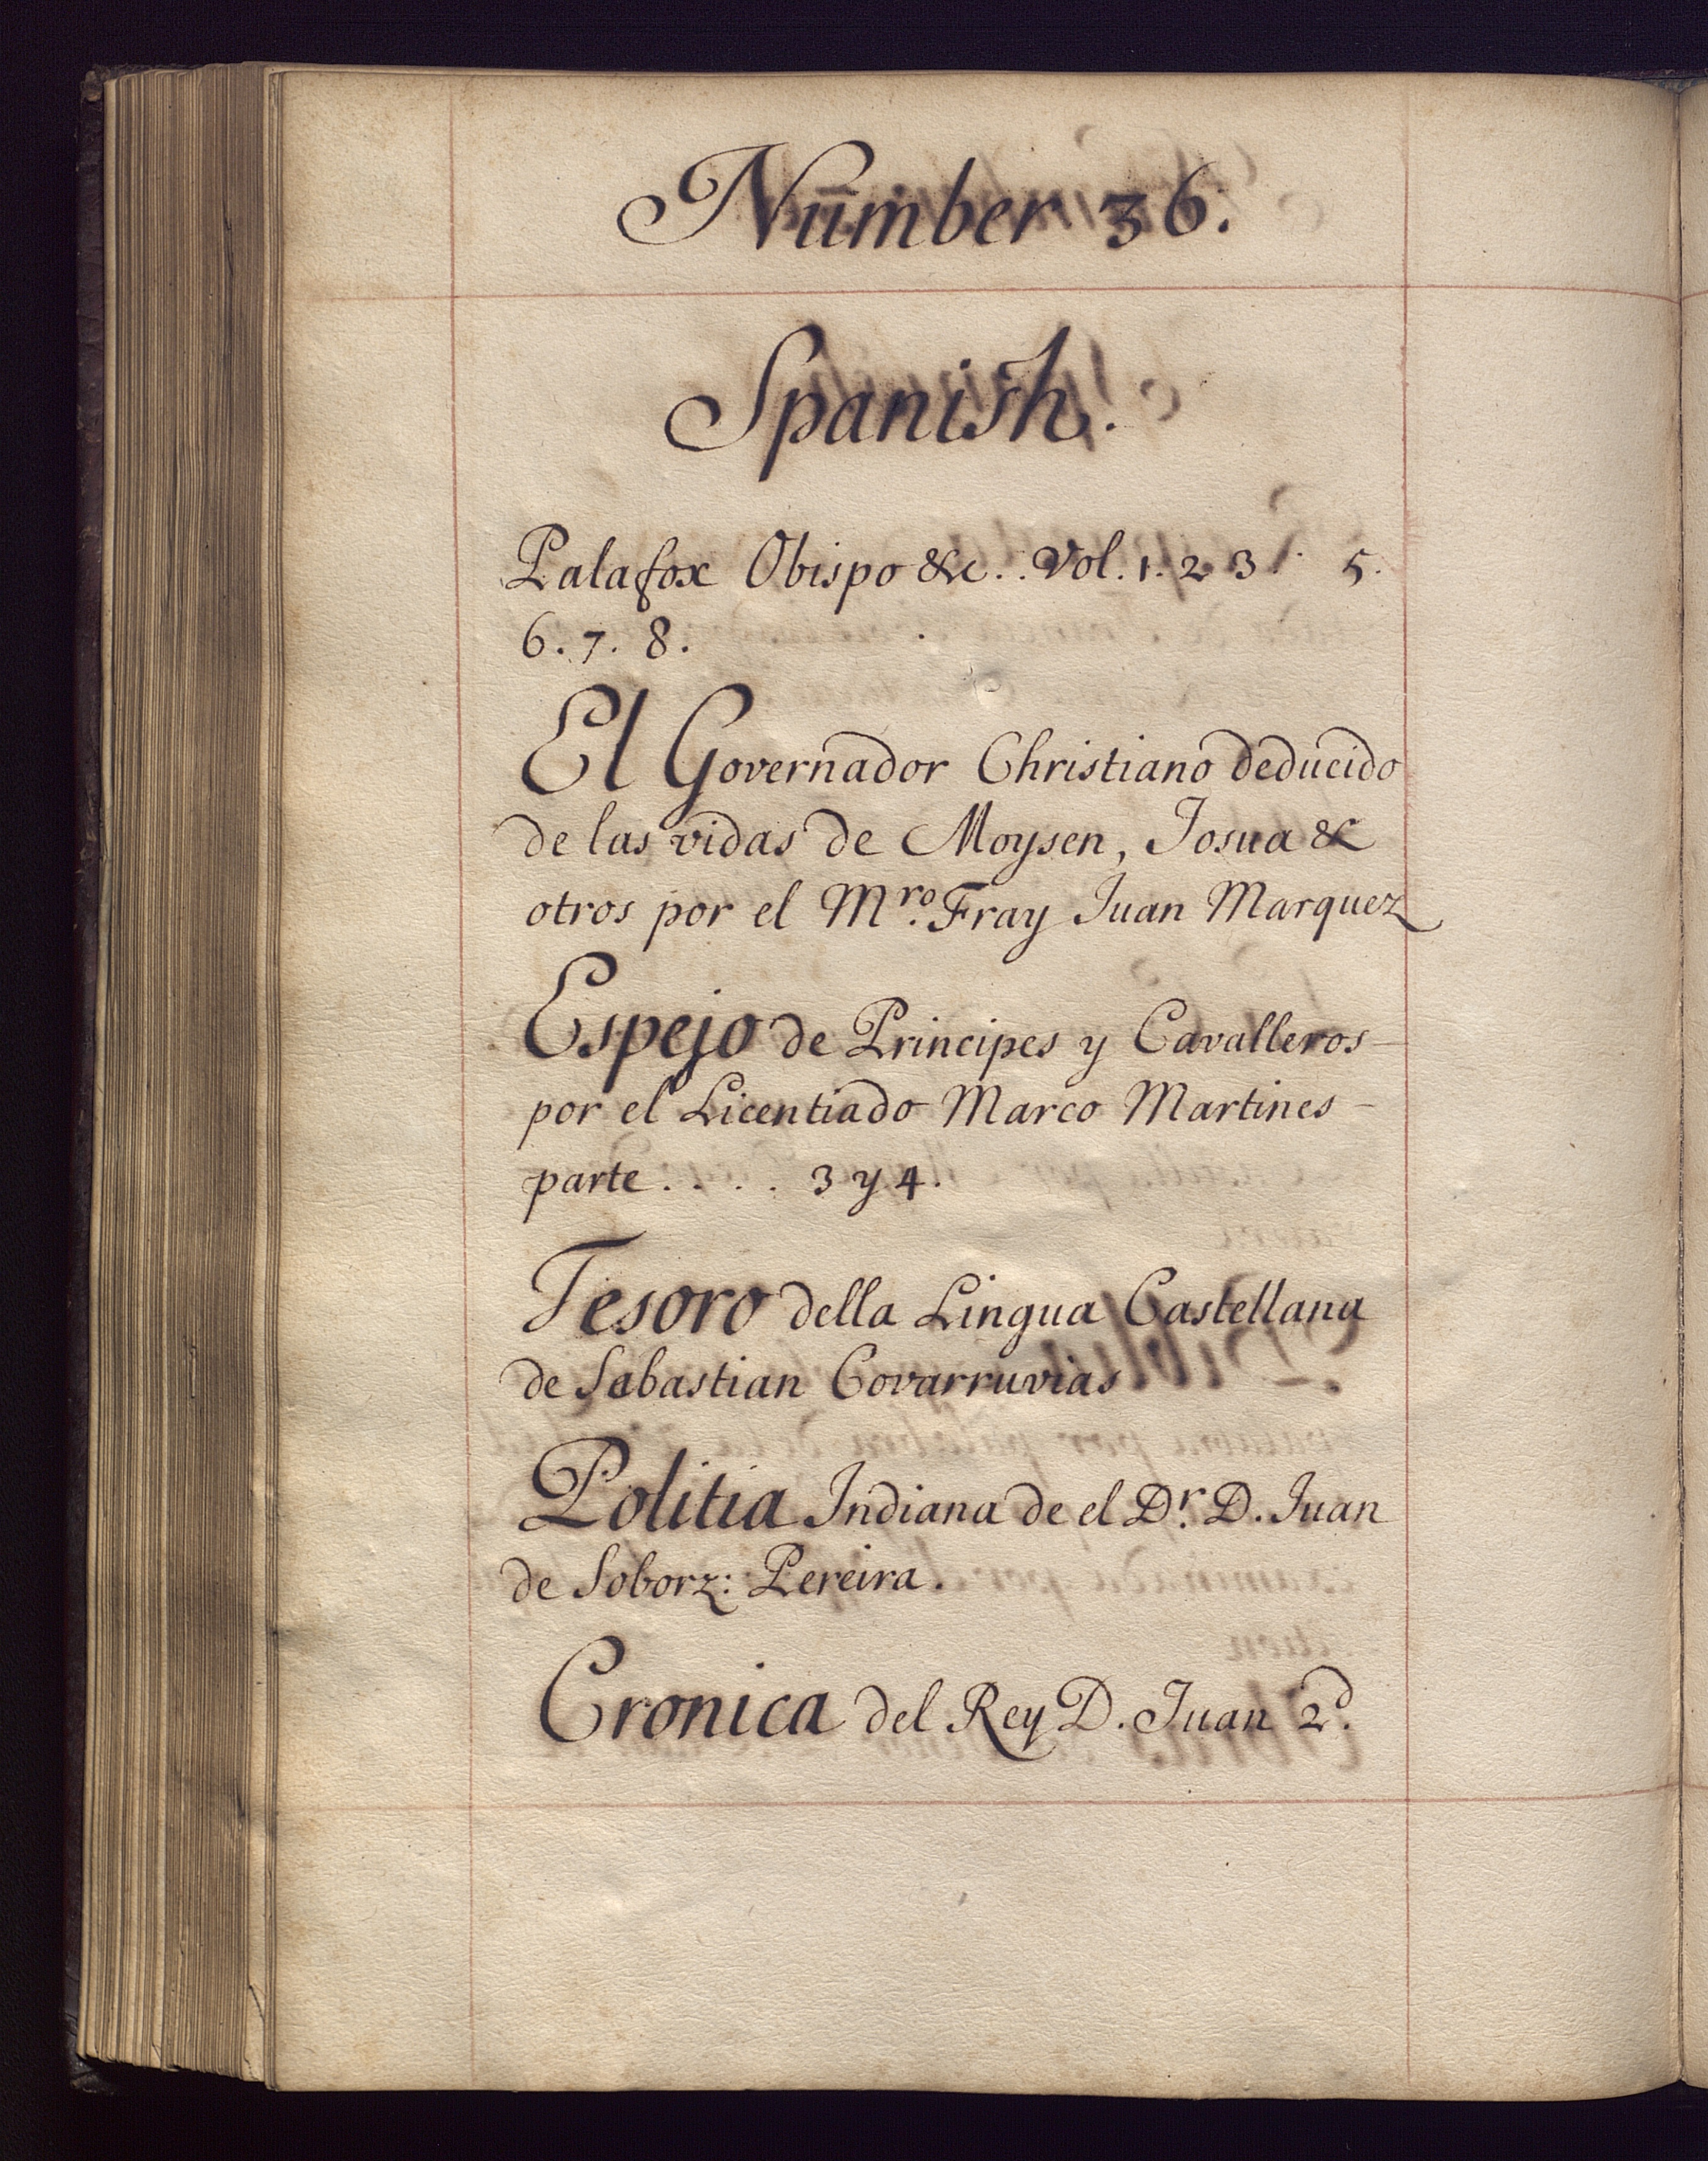 Number 36.
Spanish.
Palafox Obispo &c. . Vol. 1. 2 3 . 5.
6. 7. 8.
El Governador Christiano deducido
de las vidas de Moysen, Josua &
otros por el Mro. Fray Juan Marquez
Espejo de Principes y Cavalleros -
por el Licentiado Marco Martines -
parte . . . . 3 y 4.
Tesoro della Lingua Castellana
de Sebastian Covarruvias
Politia Indiana de el Dr. D. Juan
de Soborz: Pereira.
Cronica del Rey D. Juan 2d.